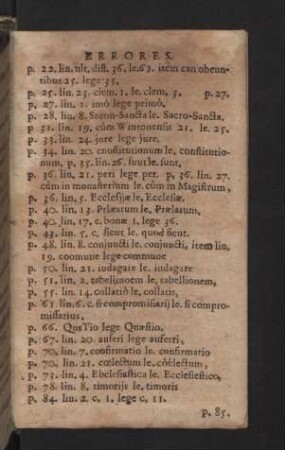 ERRORES.
p. 22. lin. ult. dist. 36. le. 63. item can obeun-
tibus 25. lege 35.
p. 25. lin. 23. clem. 1. le. clem, 3. p. 27.
p. 27. lin. 1. imò lege primò,
p. 28. lin. 8. Sacon-Sancta le. Sacro-Sancta.
p 31. lin. 19. cùm Wintonensis 21. le. 25.
p. 33. lin. 24. jure lege jure,
p. 34. lin. 20. cnostitutionum le, constitutio-
num, p. 35. lin. 26. suut le. sunt,
p. 36. lin. 21. peri lege per. p. 36. lin. 27.
cúm in monasterium le. cùm in Magistrum,
p. 36, lin, 5. Ecclesijæ le, Ecclesiæ,
p. 40. lin. 13. Prlæatum le, Prælatum,
p. 40, lin, 17. c. bonæ 1, lege 36.
p. 43. lin. 5. c, sicut le. quod sicut.
p. 48. lin. 8. conjuucti le. conjuncti, item lin,
19. coomune lege commune
p. 50. lin, 21. iudagare le. indagare
p. 51, lin, 2. tabellinoem le, tabellionem,
p. 55. lin. 14. collatiō le, collatis,
p. 61 lin. 6. c. si compromisiarij le. si compro-
missarius,
p. 66. QusTio lege Quæstio,
p. 67. lin. 20. auferi lege auferri,
p. 70. lin. 7. confirmatio le. confirmatio
p. 70, lin. 21. cœlectum le. cōlectum,
p. 73. lin, 4. Ebclesiastica le. Ecclesiestico,
p. 78. lin. 8. timorijs le. timoris
p. 84. lin. 2. c, 1. lege c, 11.
p. 85.